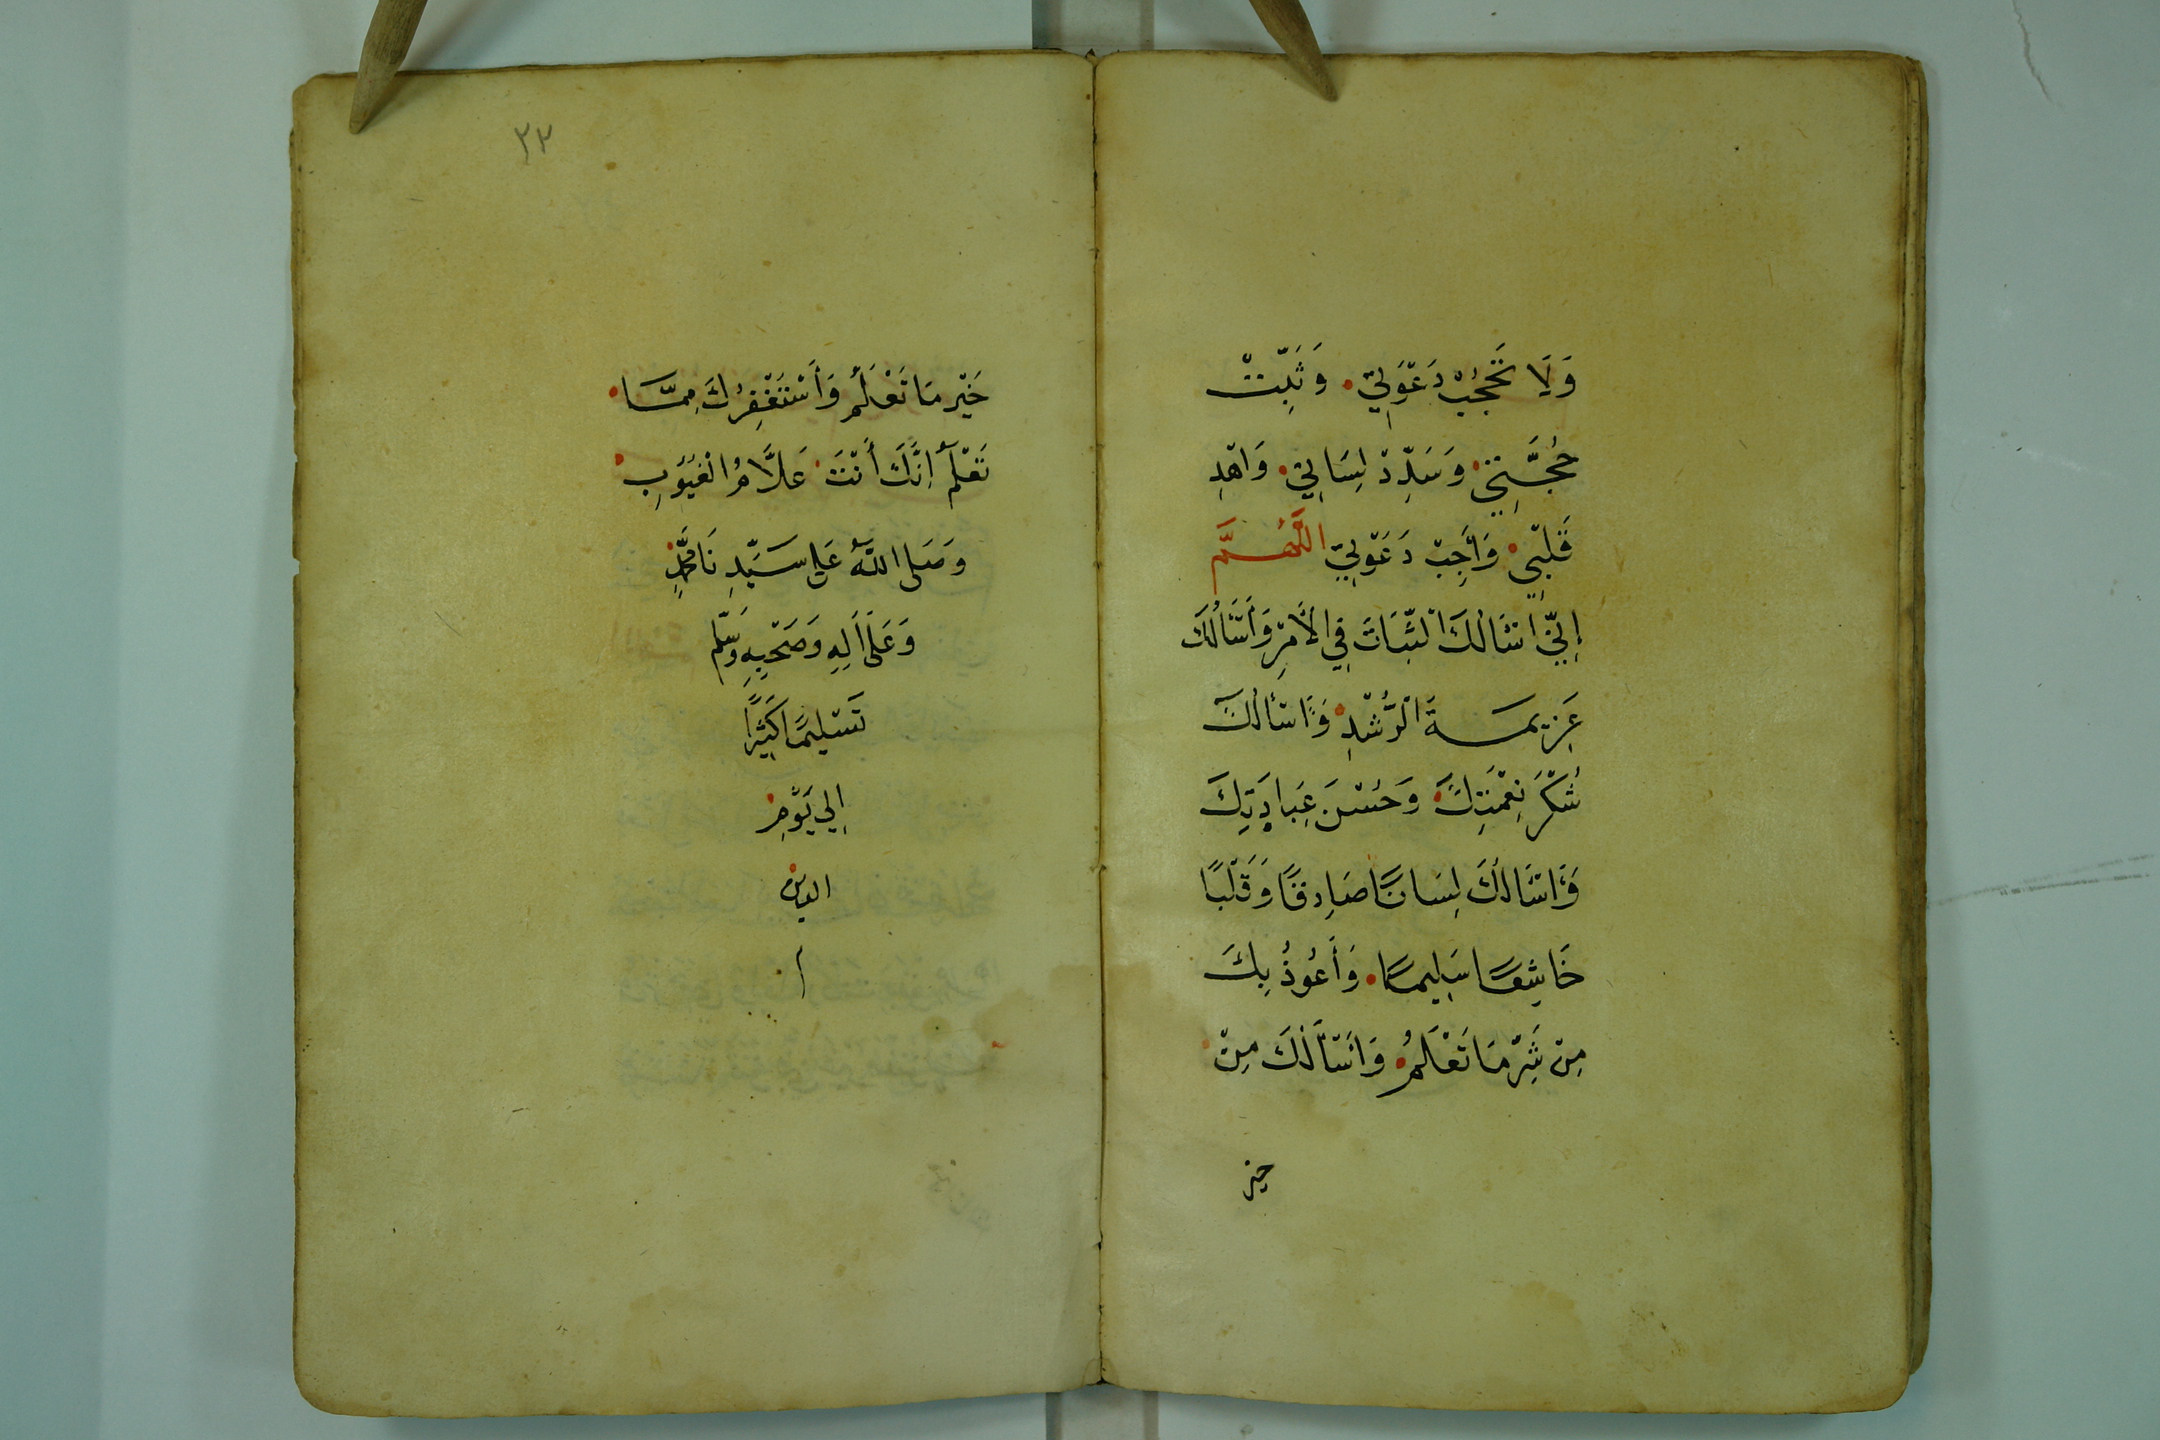 وَلَا تَحْجُبْ دَعْوَتِي وَثَبِّتْ
حُجَّتِي وَسَدِّدْ لِسَانِي وَاهْدِ
قَلْبِي وَأَجِبْ دَعْوَتِي اللَّهُمَّ
إِنِّي اسْأَلُكَ الثَّبَاتَ فِي الْأَمْرِ وَأَسْأَلُكَ
عَزِيمَةَ الرُّشْدِ وَأَسْأَلُكَ
شُكْرَ نِعْمَتِكَ وَحُسْنَ عِبَادَتِكَ
وَاسْأَلُكَ لِسَانًا صَادِقًا وَقَلْبًا
خَاشِعًا سَلِيمًا وَأَعُوذُ بِكَ
مِنْ شَرِّ مَا تَعْلَمُ وَاسْأَلُكَ مِنْ
خير
٢٣
خَيْرِ مَا تَعْلَمُ وَأَسْتَغْفِرُكَ مِمَّا
تَعْلَمُ إِنَّكَ أَنْتَ عَلَّامُ الْغُيُوبِ
وَصَلَى اللَّهُ عَلَى سَيِّدِنَا مُحَمَّدٍ
وَعَلَى أَلِهِ وَصَحْبِهِ وَسَلَّم
تَسْلِيمًا كَثِيرًا
إِلَي يَوْمِ
الدين
م